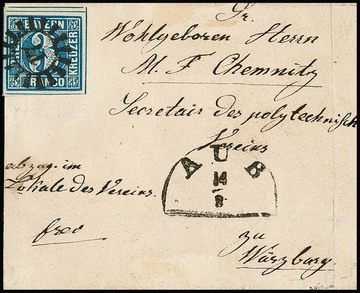 BAYERN
3
KREUZER
FRANCO
Sr.
Wohlgeboren Herrn
M. F. Chemnitz
Secretair des polytechnisch
Vereins
AUB
14
8
abzug. im
Lokale des Vereins.
frei
zu
Würzburg.